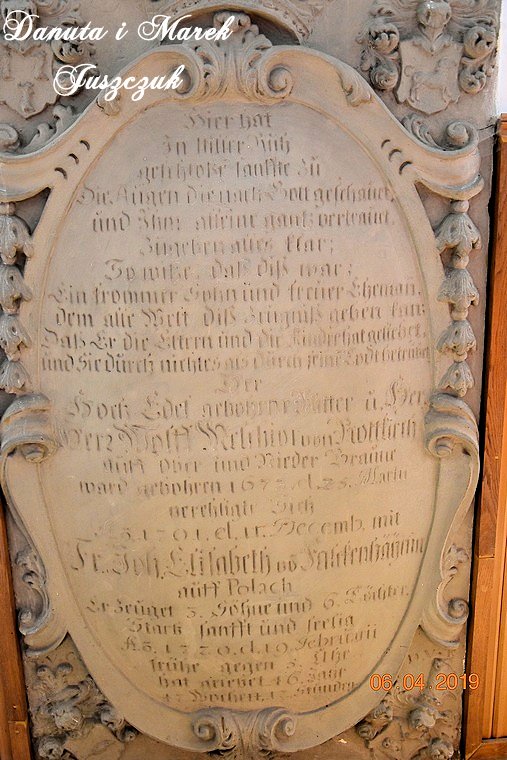 Danuta i Marek
Juszczuk
Hier hat
In stiller Ruh
geschloße sanffte zu
Die Augen die nach Gott geschauet,
und Ihm alleine gantz vertrauet,
alles klar;
So wiße, daß diß war;
Ein frommer Sohn und treuer Eheman,
dem alle Welt diß Zeugniß geben kan;
Daß Er die Eltern und die Kinder hat geliebet,
und Sie durch nichtes als durch seine Todt betrübet
Der
Hoch Edel gebohrne Ritter u. Herr
Herr Wolff Melchior von Rottkirch
auff Ober und Nieder
ward gebohren 1673 d. 25. Martii
verehligt Sich
A͞o 1701. d. 15. Decemb. mit
Fr. Joh. Elisabeth
auff Polach
Er Zeuget 3. Söhne und 6. Töchter.
Starb sanfft und seelig
A͞o 1720. d. 19 Februarii
frühe gegen 3. Uhr
hat gelebet 46. Jahr
47 Wochen, 12 Stunden
06 04 2019